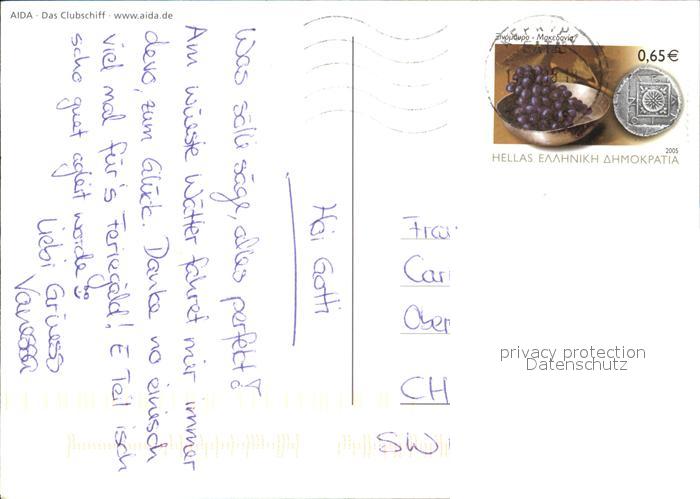 AIDA · Das Clubschiff · www.aida.de
Hoi Gotti
Was sölli säge, alles perfekt!
Am wüeste Wätter fahret mir immer
devo, zum Glück. Danke no einisch
viel mal für's Feriegäld! E Teil isch
scho guet agleit worde
Liebi Grüess
Vanessa
Ξινόμαυρο - Μακεδονία
0,65€
2005
HELLAS ΕΛΛΗΝΙΚΗ ΔΗΜΟΚΡΑΤΙΑ
Frau
Cari
Ober
CH
SW
privacy protection
Datenschutz